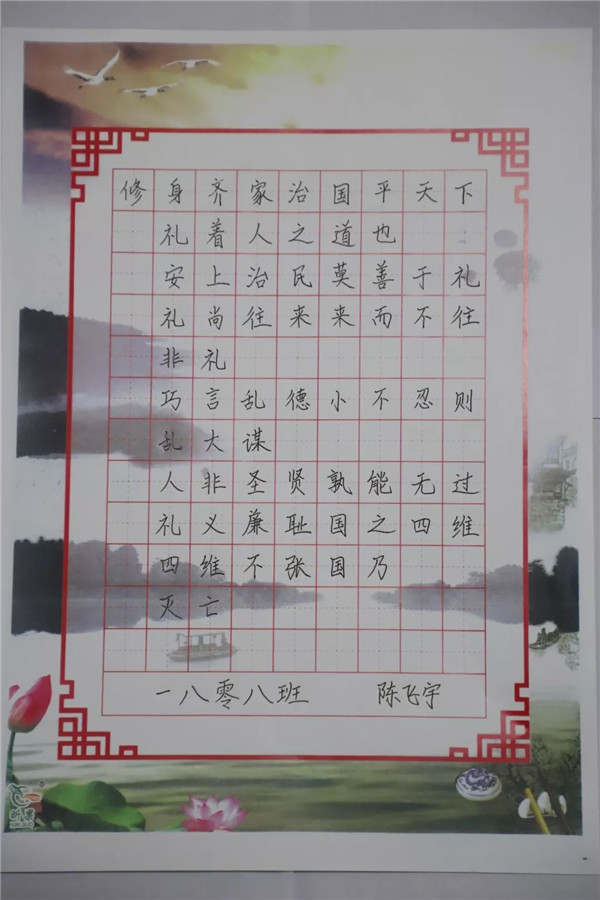 修身齐家治国平天下
礼着人之道也
安上治民莫善于礼
礼尚往来来而不往
非礼
巧言乱德小不忍则
乱大谋
人非圣贤孰能无过
礼义廉耻国之四维
四维不张国乃
灭亡
一八零八班 陈飞宇